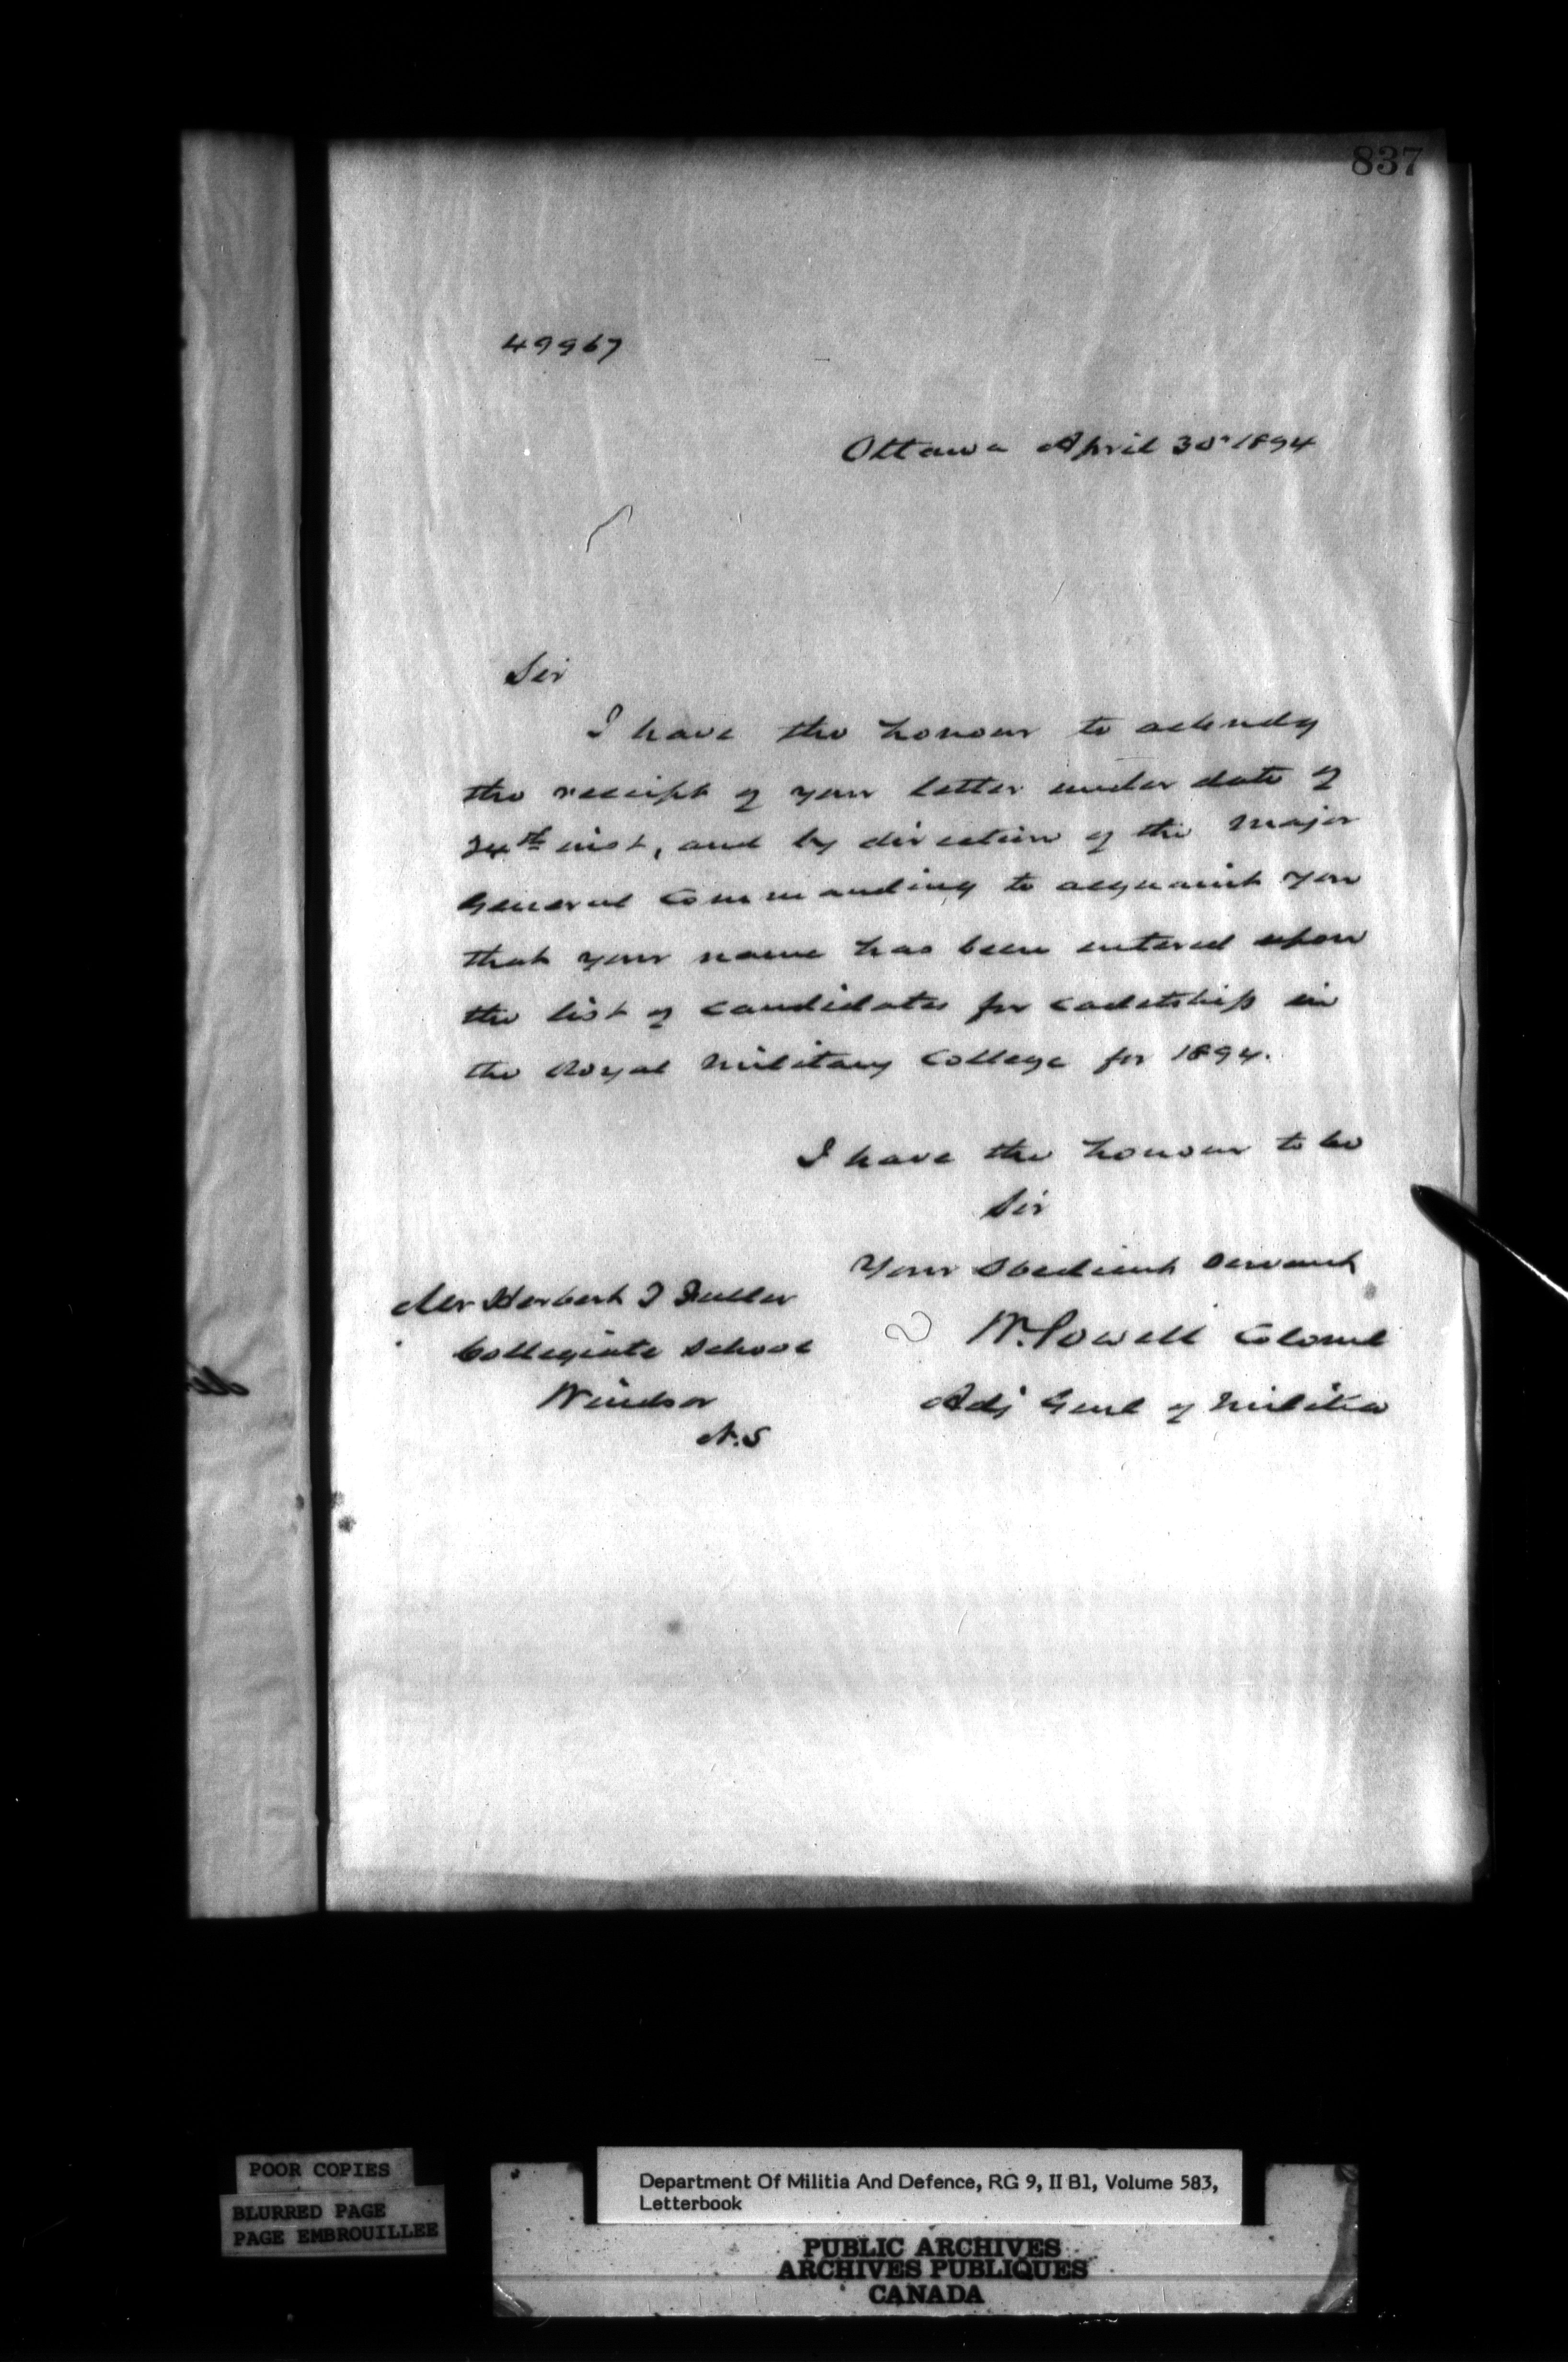 837
49967
Ottawa April 30th 1894
Sir
I have the honour to ackndg
the receipt of your letter under date of
24th inst, and by direction of the Major
General Commanding to acquaint you
that your name has been entered upon
the list of candidates for cadetship in
the Royal Military College for 1894.
I have the honour to be
Sir
Your Obedient Servant
W. Powell Colonel
Adj Genl of Militia
Mr Herbert J Fuller
Collegiate School
Windsor
N.S
POOR COPIES
BLURRED PAGE
PAGE EMBROUILLEE
Department Of Militia And Defence, RG 9, II B1, Volume 583,
Letterbook
PUBLIC ARCHIVES
ARCHIVES PUBLIQUES
CANADA